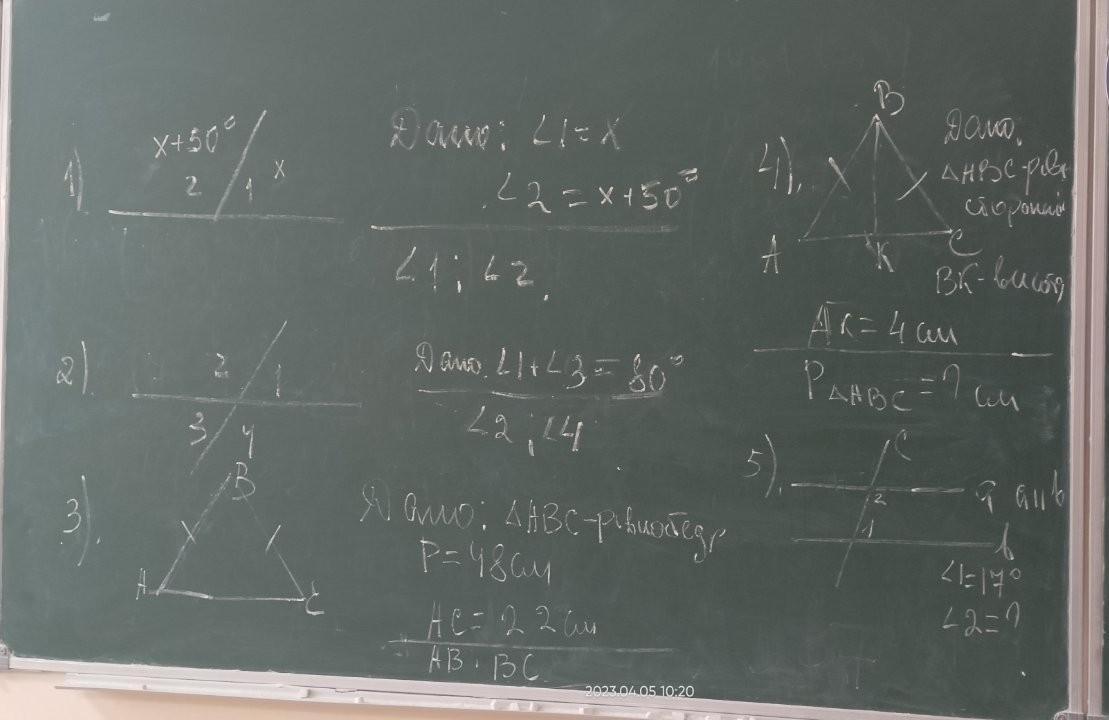 1)
x+50°
2 1 x
Дано: ∠1=x
∠2=x+50°
∠1; ∠2.
2)
2 1
3 4
Дано. ∠1+∠3=80°
∠2; ∠4
3).
B
A C
Дано: △ABC-рівнобедр
P=48см
AC=22см
AB. BC
4).
B
A K C
Дано:
△ABC-рівно
сторонній
BK-висота
AK=4см
P△ABC=? см
5).
c
2 а а||b
1
b
∠1=17°
∠2=?
2023.04.05 10:20